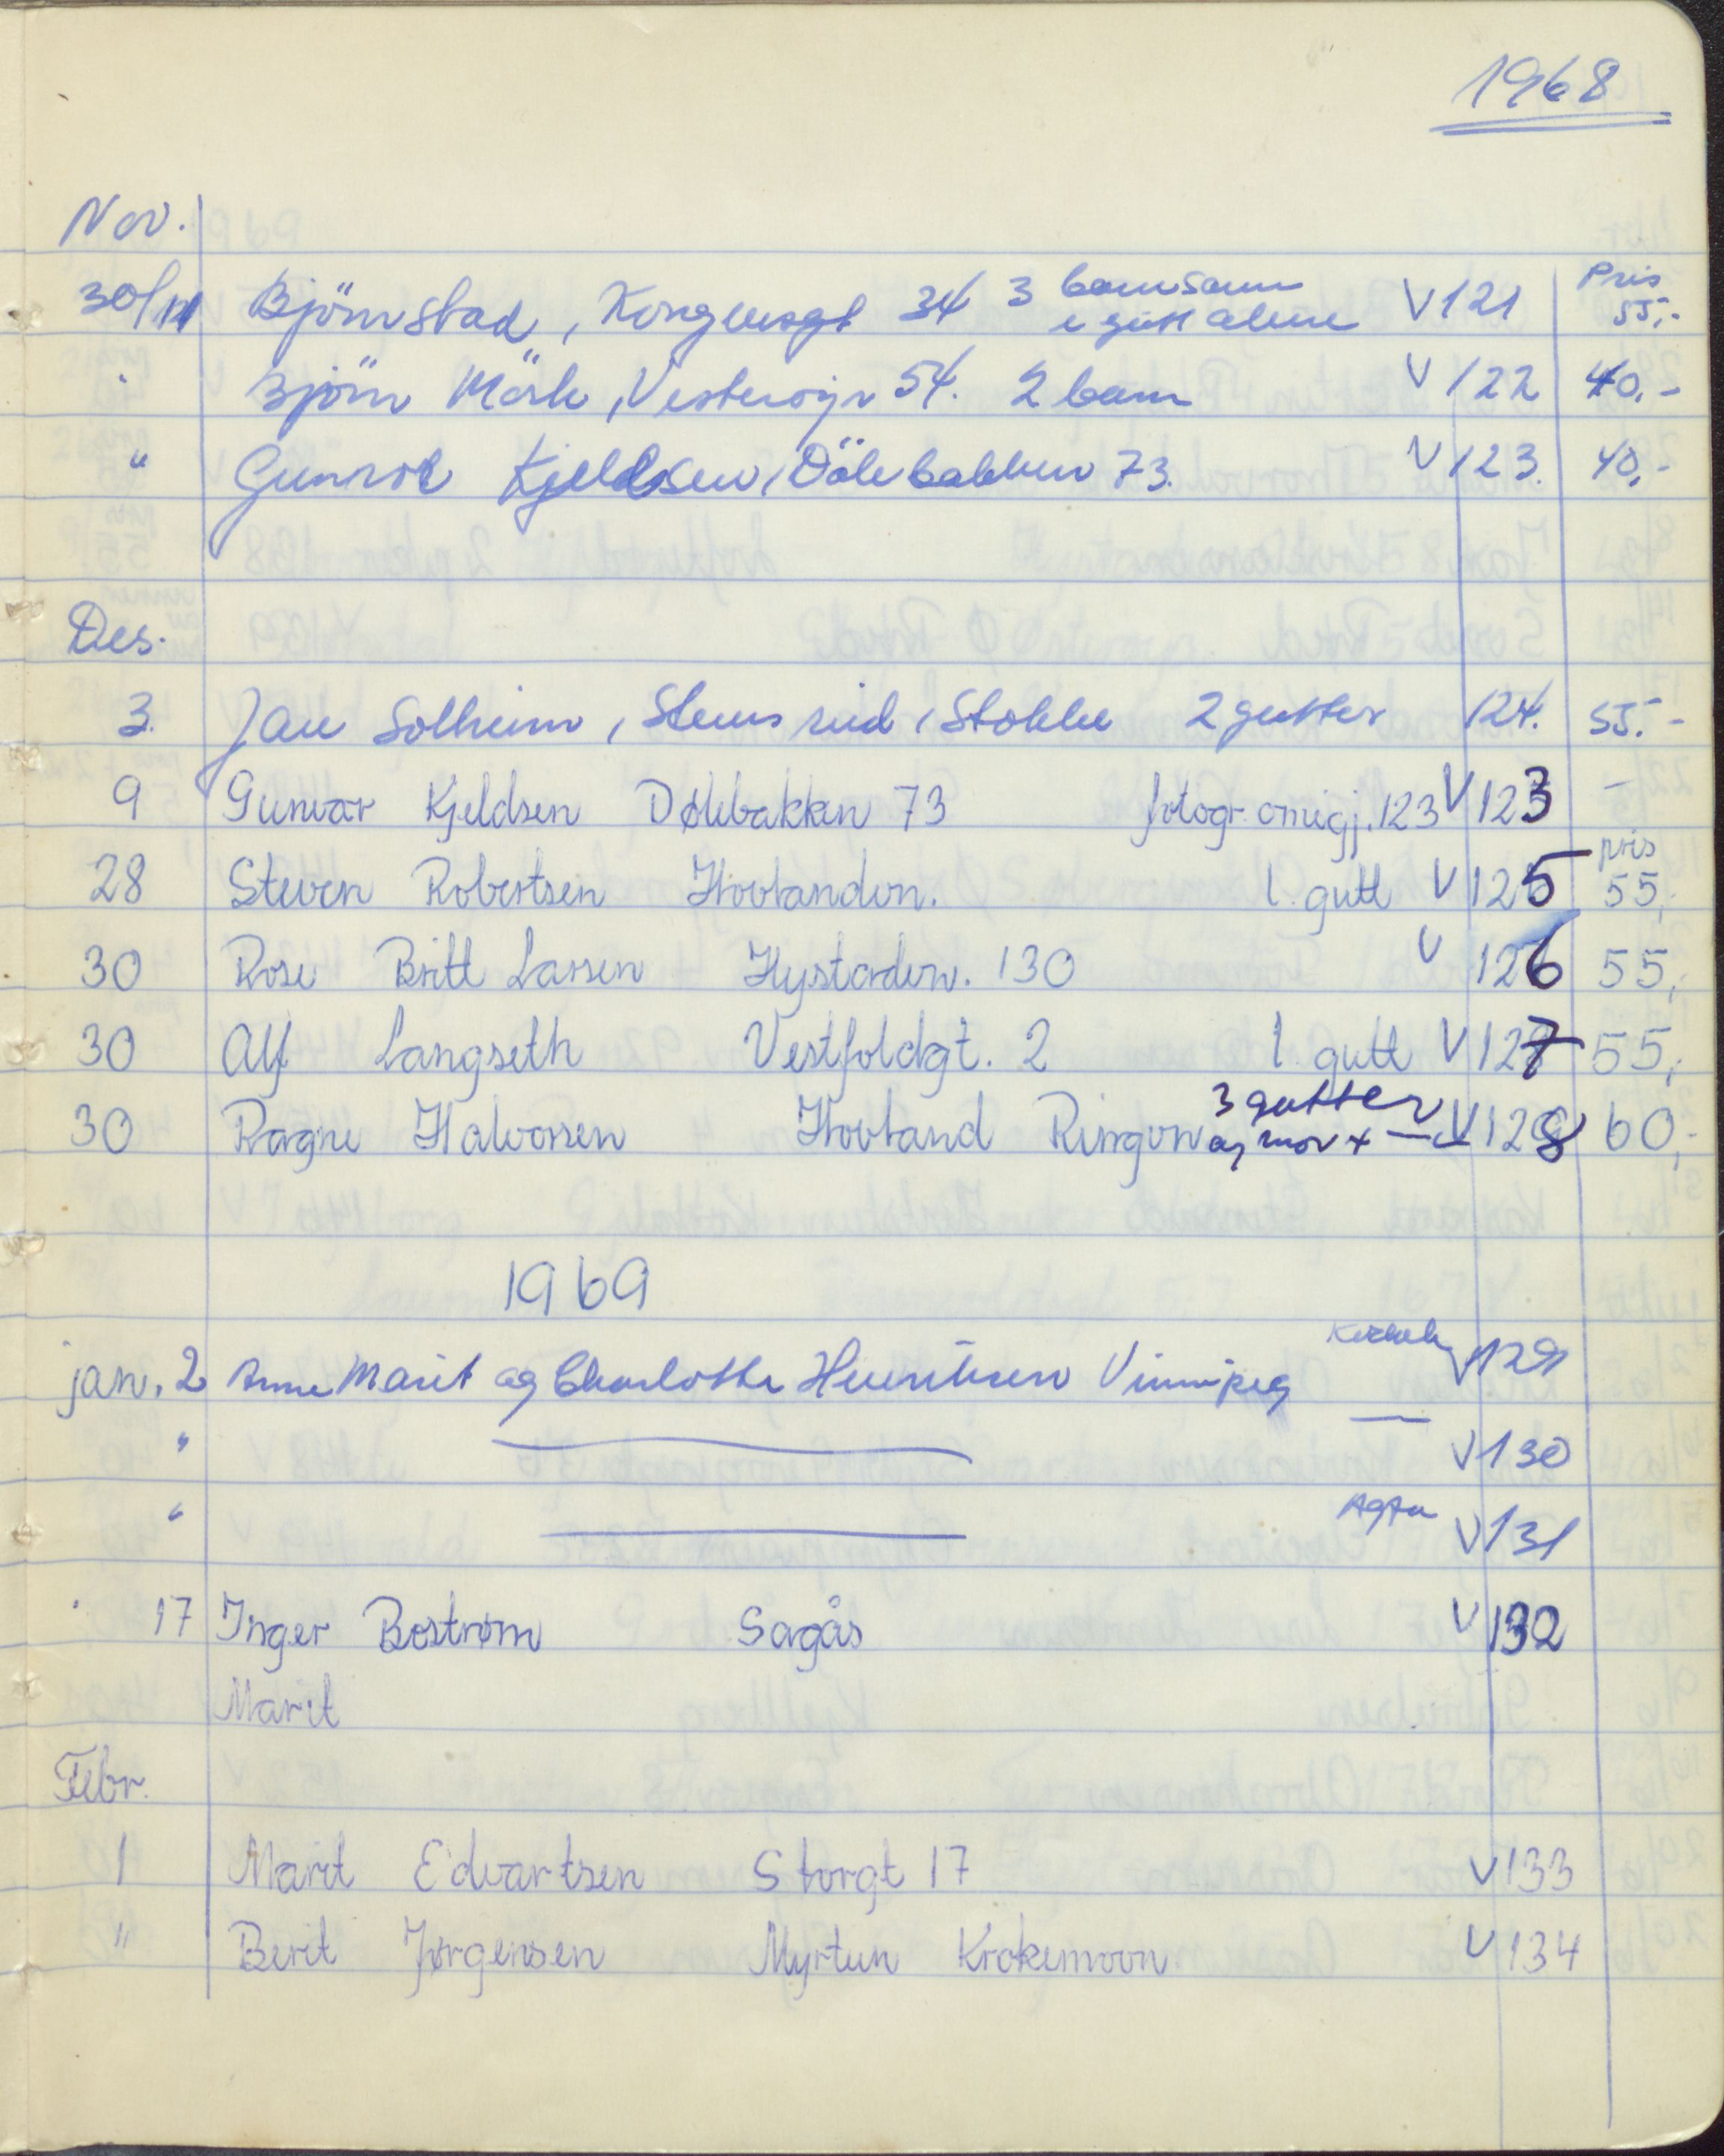 1968
Nov.
30/11 Björnstad, Kongensgt 34 3 barn sam Pris
e gutt alene V 121 55,-
" Björn Mörk, Vesterøyv 54. 2 barn V 122 40,-
" Gunvor Kjeldsen, Dölebakken 73. V 123. 40,-
Des.
3. Jan Solheim, Stensrud, Stokke 2 gutter 124. 55.-
9 Gunvor Kjeldsen Dølebakken 73 fotogr. omigj. 123 V 123 -
28 Steven Robertsen Hovlandvn. 1. gutt V 125 pris 55,-
30 Rose Britt Larsen Hystadvn. 130 V 126 55,-
30 Alf Langseth Vestfoldgt. 2 1. gutt V 127 55,-
30 Ragne Halvorsen Hovland Ringvn 3 gutter
og mor + — V 128 60,-
1969
jan. 2 Anne Marit og Charlotte Henriksen Vinnipeg V 129
" — V 130
" Agfa V 131
" 17 Inger Bostrøm Sagås V 132
Marit
Febr.
1 Marit Edvartsen Storgt 17 V 133
" Berit Jørgensen Myrtun Krokemovn V 134